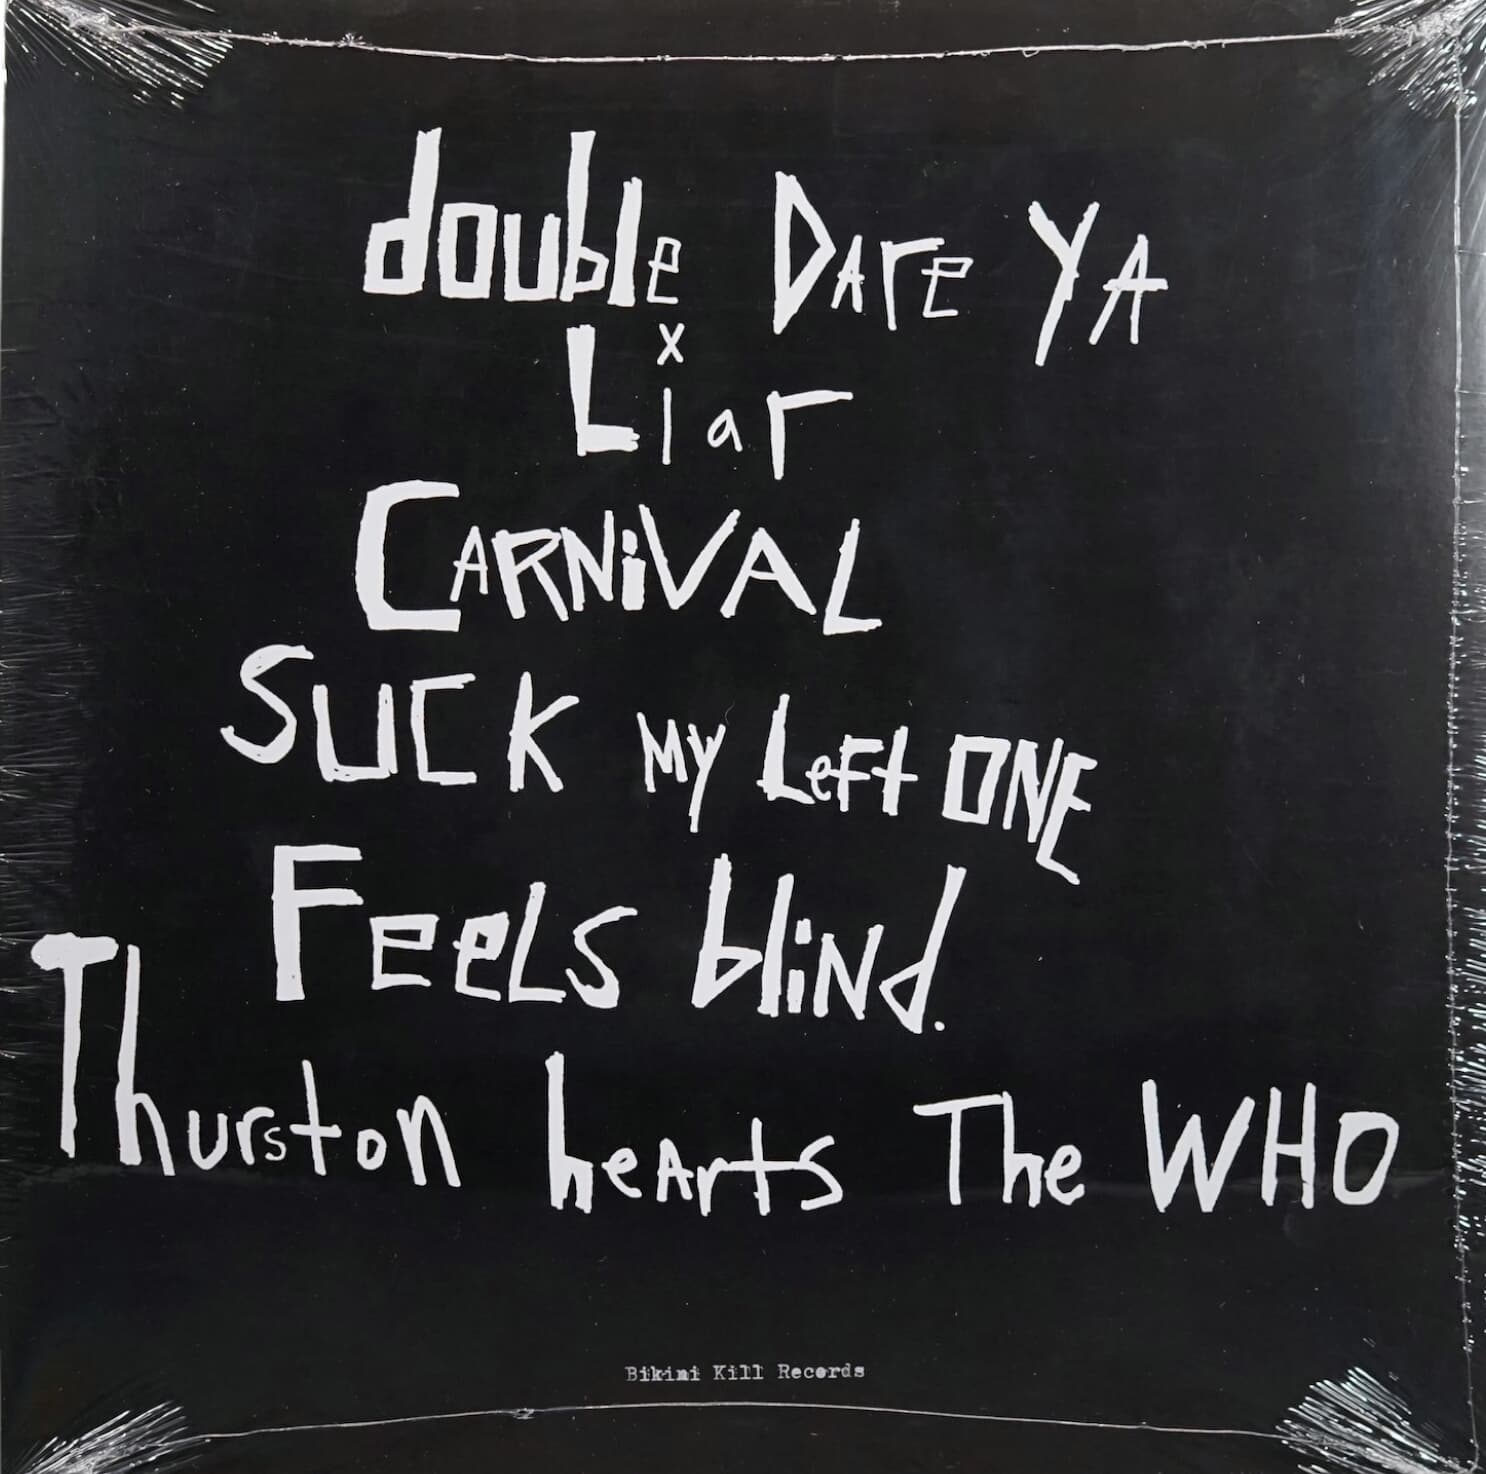 double Dare YA
Liar
CARNiVAL
SUCK MY Left ONE
FeeLs bliNd.
Thurston heArts The WHO
Bikini Kill Records